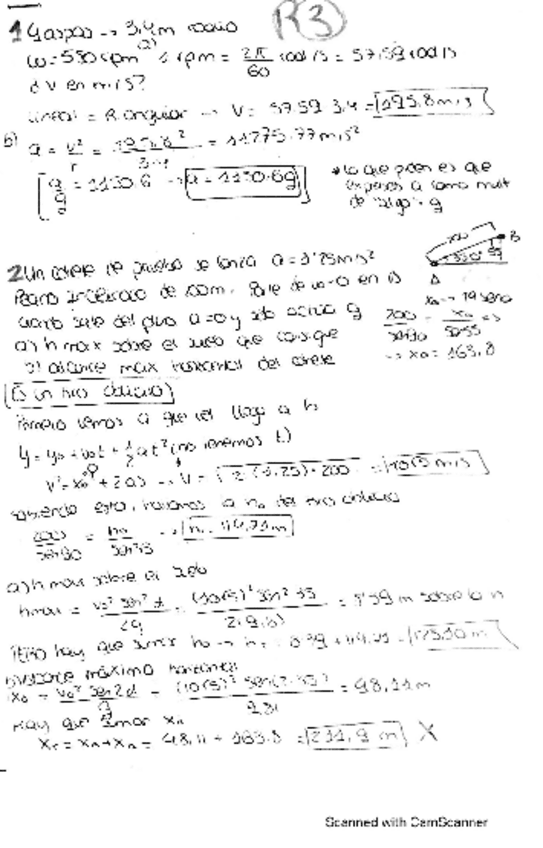 R3
1 4 aspas → 3,4m radio
ω=550rpm 1 rpm = 2π/60 rad/s = 57,59 rad/s
¿V en m/s?
lineal = R angular → V= 57'59 3,4 = 195,8 m/s
b) a = v²/r = = 11275.77 m/s²
a/g = 1150.6 → a = 1150.6g
* lo que piden es que
expreses a como mult
de "algo" g
2 Un cohete de prueba se lanza a=1'25m/s²
de 200m. Parte de v0=0 en A
cuando sale del a=0 y solo actúa g
a) h max sobre el suelo que consigue
b) alcance max horizontal del cohete
200 B
A
200/sen90 = xa/sen55 =>
→ xa = 163,8
Es un tiro oblicuo
Primero vemos a que vel llega a h
y = y0 + v0t + 1/2 at² (no tenemos t)
v² = v0² + 2as → V = √2·(1,25)·200 = 10√5 m/s
sabiendo esto, hallamos la h0 del tiro oblicuo
200/sen90 = h0/sen35 → h = 114.71m
a) h max sobre el suelo
hmax = v0² sen² α/2g = (10√5)² sen² 35/2·9.81 = 8'39 m sobre la h
Pero hay que sumar h0 → h =
b) alcance máximo horizontal
x0 = v0² sen2α/g = (10√5)² sen(2·35)/9.81 = 48,11m
Hay que sumar xa
= 48,11 + 163.8 = 211,9 m X
Scanned with CamScanner